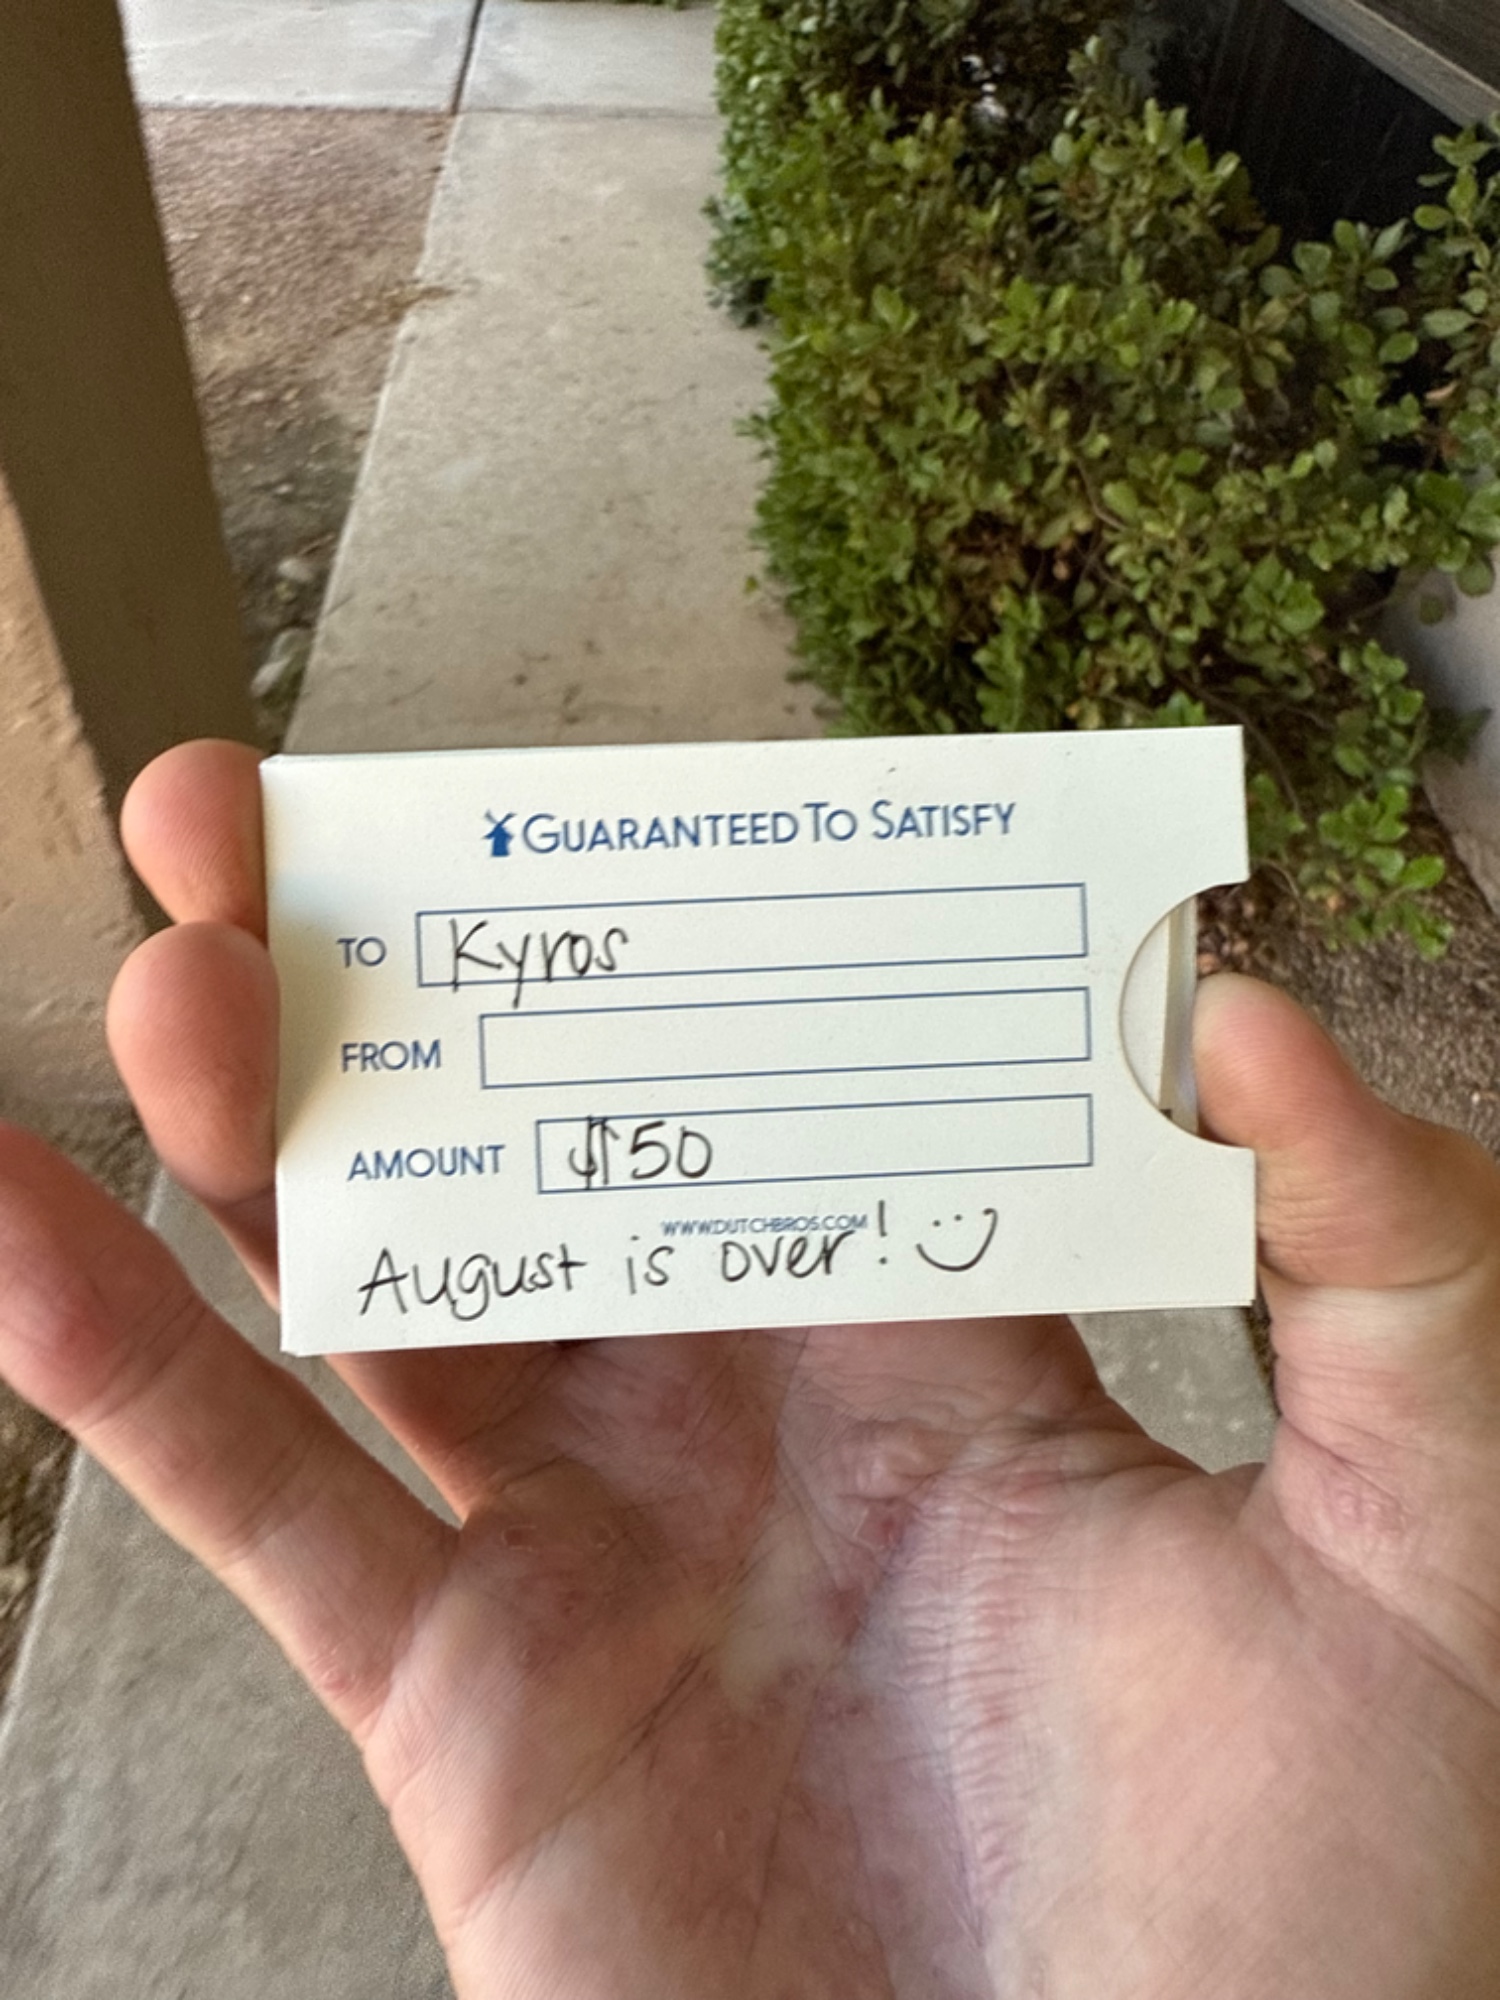 GUARANTEED TO SATISFY
TO Kyros
FROM
AMOUNT $50
WWW.DUTCHBROS.COM
August is over! :)